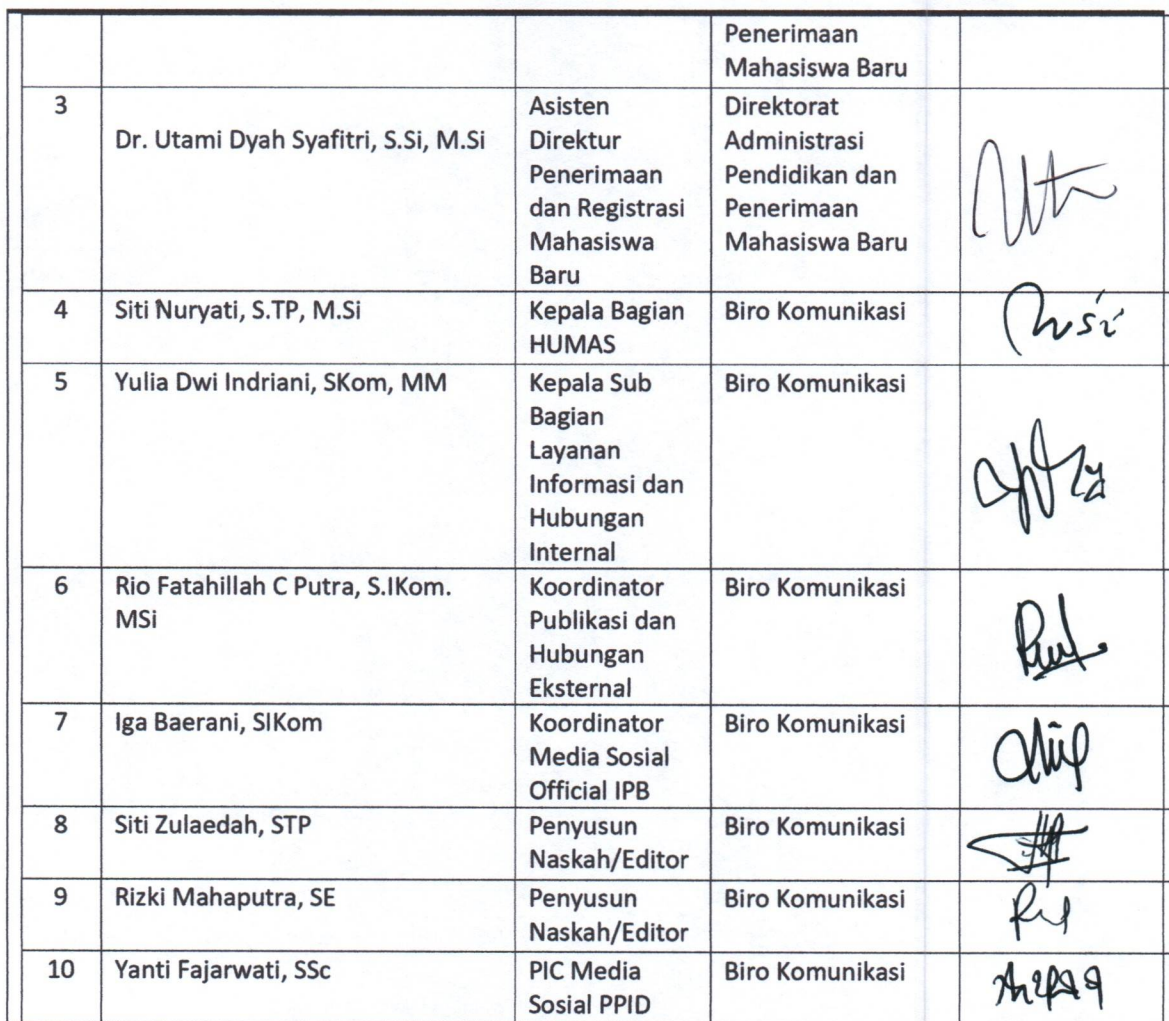 Penerimaan
Mahasiswa Baru
3
Dr. Utami Dyah Syafitri, S.Si, M.Si
Asisten
Direktur
Penerimaan
dan Registrasi
Mahasiswa
Baru
Direktorat
Administrasi
Pendidikan dan
Penerimaan
Mahasiswa Baru
4
Siti Nuryati, S.TP, M.Si
Kepala Bagian
HUMAS
Biro Komunikasi
5
Yulia Dwi Indriani, SKom, MM
Kepala Sub
Bagian
Layanan
Informasi dan
Hubungan
Internal
Biro Komunikasi
6
Rio Fatahillah C Putra, S.IKom.
MSi
Koordinator
Publikasi dan
Hubungan
Eksternal
Biro Komunikasi
7
Iga Baerani, SIKom
Koordinator
Media Sosial
Official IPB
Biro Komunikasi
8
Siti Zulaedah, STP
Penyusun
Naskah/Editor
Biro Komunikasi
9
Rizki Mahaputra, SE
Penyusun
Naskah/Editor
Biro Komunikasi
10
Yanti Fajarwati, SSc
PIC Media
Sosial PPID
Biro Komunikasi